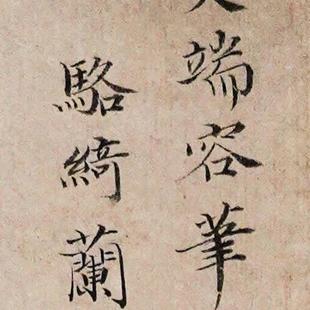 端容筆
駱綺蘭